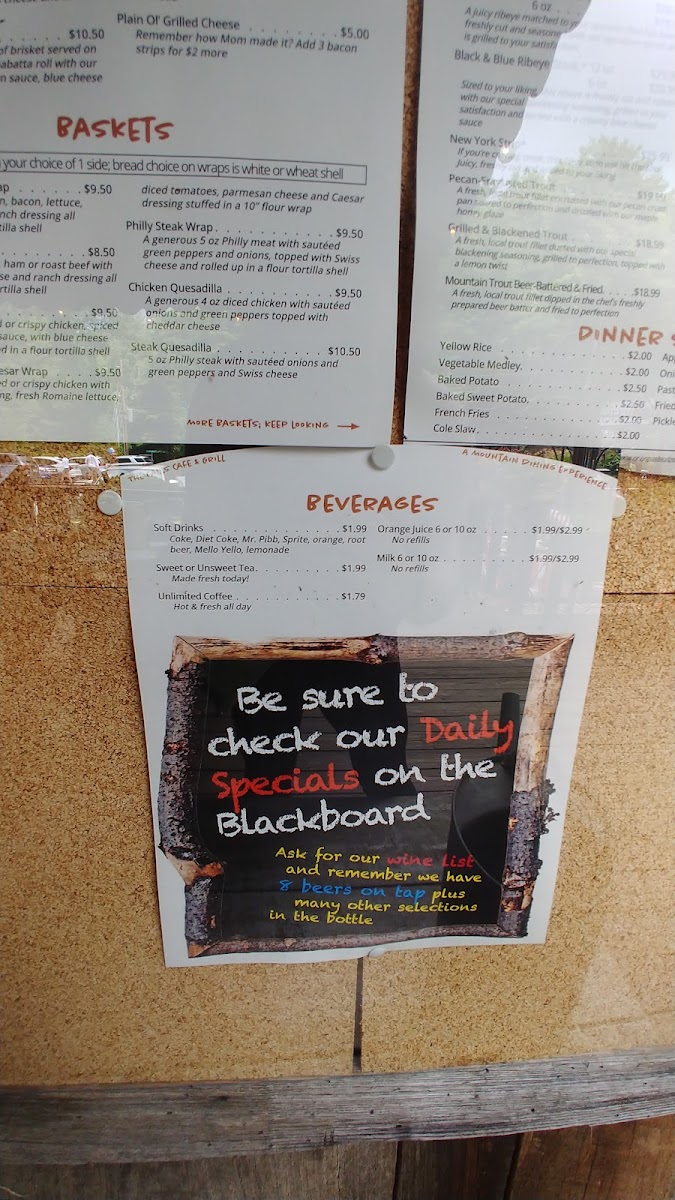 $10.50
of brisket served on
abatta roll with our
n sauce, blue cheese
Plain Ol' Grilled Cheese . . . . . . . . $5.00
Remember how Mom made it? Add 3 bacon
strips for $2 more
BASKETS
your choice of 1 side; bread choice on wraps is white or wheat shell
ap . . . . . . . $9.50
n, bacon, lettuce,
nch dressing all
tilla shell
$8.50
ham or roast beef with
se and ranch dressing all
rtilla shell
$9.50
d or crispy chicken, spiced
sauce, with blue cheese
ed in a flour tortilla shell
esar Wrap . . . . $9.50
ed or crispy chicken with
ng, fresh Romaine lettuce,
diced tomatoes, parmesan cheese and Caesar
dressing stuffed in a 10" flour wrap
Philly Steak Wrap . . . . . . . . . . $9.50
A generous 5 oz Philly meat with sautéed
green peppers and onions, topped with Swiss
cheese and rolled up in a flour tortilla shell
Chicken Quesadilla . . . . . . . . . . $9.50
A generous 4 oz diced chicken with sautéed
onions and green peppers topped with
cheddar cheese
Steak Quesadilla . . . . . . . . . . $10.50
5 oz Philly steak with sautéed onions and
green peppers and Swiss cheese
MORE BASKETS; KEEP LOOKING
6 oz
A juicy ribeye matched to
freshly cut and
is grilled to your
Black & Blue Ribeye
Sized to your liking,
with our special
satisfaction and
sauce
New York
If you're
Juicy,
Pecan- Trout $19.99
A fresh, local trout fillet encrusted with our pecan crust
pan sauteed to perfection and drizzled with our maple
honey glaze
Grilled & Blackened Trout . . . . . . $18.99
A fresh, local trout fillet dusted with our special
blackening seasoning, grilled to perfection, topped with
a lemon twist
Mountain Trout Beer-Battered & Fried . . . . $18.99
A fresh, local trout fillet dipped in the chef's freshly
prepared beer batter and fried to perfection
DINNER S
Yellow Rice . . . . . . . . . . $2.00
Vegetable Medley. . . . . . . . . $2.00
Baked Potato . . . . . . . . . $2.50
Baked Sweet Potato. . . . . . . . $2.50
French Fries . . . . . . . . . $2.00
Cole Slaw. . . . . . . . . . $2.00
Ap
Oni
Past
Fried
Pickle
CAFE & GRILL
A MOUNTAIN DINING EXPERIENCE
BEVERAGES
Soft Drinks . . . . . . . . . . $1.99
Coke, Diet Coke, Mr. Pibb, Sprite, orange, root
beer, Mello Yello, lemonade
Sweet or Unsweet Tea. . . . . . . . $1.99
Made fresh today!
Unlimited Coffee . . . . . . . . . $1.79
Hot & fresh all day
Orange Juice 6 or 10 oz . . . . . $1.99/$2.99
No refills
Milk 6 or 10 oz . . . . . . . . $1.99/$2.99
No refills
Be sure to
check our Daily
Specials on the
Blackboard
Ask for our wine list
and remember we have
8 beers on tap plus
many other selections
in the bottle